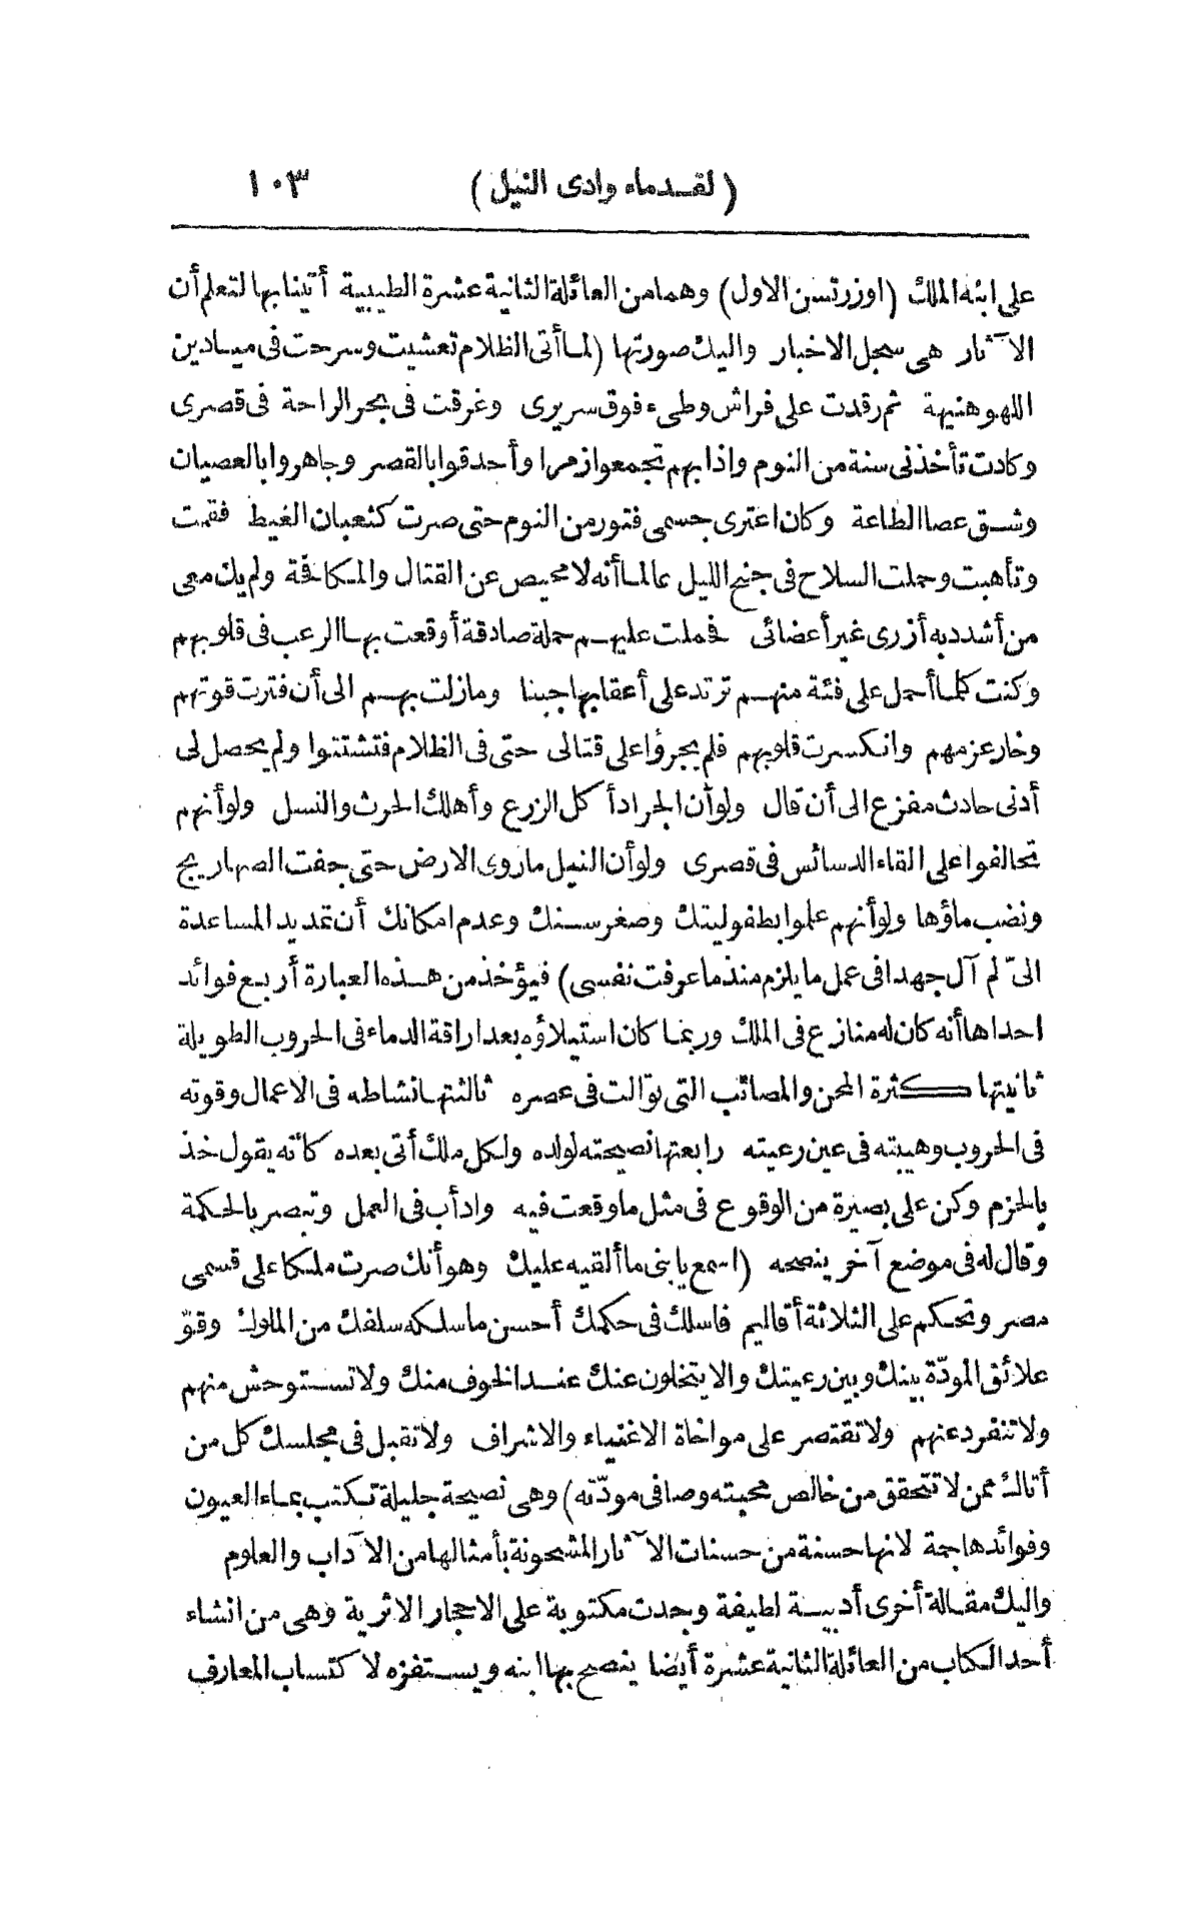 (لقدماء وادى النيل) ١٠٣
على ابنه الملك (اوزرتسن الاول) وهما من العائلة الثانية عشرة الطيبية أتينا بها لتعلم أن
الآثار هى سجل الاخبار واليك صورتها (لما أتى الظلام تعشيت وسرحت فى ميادين
اللهو هنيهة ثم رقدت على فراش وطىء فوق سريرى وغرقت فى بحر الراحة فى قصرى
وكادت تأخذنى سنة من النوم واذا بهم تجمعوا زمرا وأحدقوا بالقصر وجاهروا بالعصيان
وشق عصا الطاعة وكان اعترى جسمى فتور من النوم حتى صرت كثعبان الغيط فقمت
وتأهبت وحملت السلاح فى جنح الليل عالما أنه لا محيص عن القتال والمكافحة ولم يك معى
من أشدد به أزرى غير أعضائى فحملت عليهم حملة صادقة أوقعت بها الرعب فى قلوبهم
وكنت كلما أحمل على فئة منهم ترتد على أعقابها جبنا ومازلت بهم الى أن فترت قوتهم
وخار عزمهم وانكسرت قلوبهم فلم يجرؤا على قتالى حتى فى الظلام فتشتتوا ولم يحصل لى
أدنى حادث مفزع الى أن قال ولو أن الجراد أكل الزرع وأهلك الحرث والنسل ولو أنهم
تحالفوا على القاء الدسائس فى قصرى ولو أن النيل ما روى الارض حتى جفت الصهاريج
ونضب ماؤها ولو أنهم علموا بطفوليتك وصغر سنك وعدم امكانك أن تمد يد المساعدة
الىّ لم آل جهدا فى عمل ما يلزم منذ ما عرفت نفسى) فيؤخذ من هذه العبارة أربع فوائد
احداها أنه كان له منازع فى الملك وربما كان استيلاؤه بعد اراقة الدماء فى الحروب الطويلة
ثانيتها كثرة المحن والمصائب التى توالت فى عصره ثالثتها نشاطه فى الاعمال وقوته
فى الحروب وهيبته فى عين رعيته رابعتها نصيحته لولده ولكل ملك أتى بعده كأنه يقول خذ
بالحزم وكن على بصيرة من الوقوع فى مثل ما وقعت فيه وادأب فى العمل وتبصر بالحكمة
وقال له فى موضع آخر ينصحه (اسمع يا بنى ما ألقيه عليك وهو أنك صرت ملكا على قسمى
مصر وتحكم على الثلاثة أقاليم فاسلك فى حكمك أحسن ما سلكه سلفك من الملوك وقوّ
علائق المودّة بينك وبين رعيتك والا يتخلون عنك عند الخوف منك ولا تستوحش منهم
ولا تنفرد عنهم ولا تقتصر على مواخاة الاغنياء والاشراف ولا تقبل فى مجلسك كل من
أتاك ممن لا تتحقق من خالص محبته وصافى مودّته) وهى نصيحة جليلة تكتب بماء العيون
وفوائدها جمة لانها حسنة من حسنات الآثار المشحونة بأمثالها من الآداب والعلوم
واليك مقالة أخرى أدبية لطيفة وجدت مكتوبة على الاحجار الاثرية وهى من انشاء
أحد الكتاب من العائلة الثانية عشرة أيضا ينصح بها ابنه ويستفزه لاكتساب المعارف